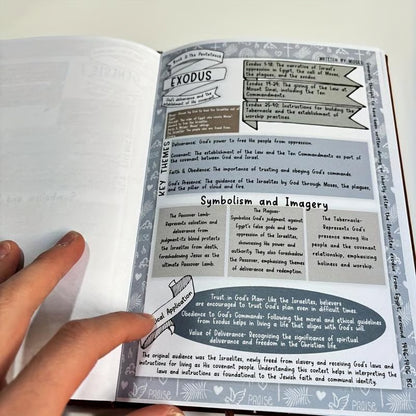 Book 2: The Pentateuch
WRITTEN BY MOSES
EXODUS
God's deliverance and the
establishment of His covenant
Exodus 1-18: The narrative of Israel's
oppression in Egypt, the call of Moses,
the plagues, and the exodus.
Exodus 19-24: The giving of the Law at
Mount Sinai, including the Ten
Commandments.
Exodus 25-40: Instructions for building the
Tabernacle and the establishment of
worship practices.
KEY THEMES
Deliverance: God's power to free His people from oppression.
Covenant: The establishment of the Law and the Ten Commandments as part of
the covenant between God and Israel.
Faith & Obedience: The importance of trusting and obeying God's commands.
God's Presence: The guidance of the Israelites by God through Moses, the plagues,
and the pillar of cloud and fire.
Symbolism and Imagery
The Passover Lamb:
Represents salvation and
deliverance from
judgment—its blood protects
the Israelites from death,
foreshadowing Jesus as the
ultimate Passover Lamb.
The Plagues:
Symbolize God's judgment against
Egypt's false gods and their
oppression of the Israelites,
showcasing His power and
authority. They also foreshadow
the Passover, emphasizing themes
of deliverance and redemption.
The Tabernacle:
Represents God's
presence among His
people and the covenant
relationship, emphasizing
holiness and worship.
Application
Trust in God's Plan: Like the Israelites, believers
are encouraged to trust God's plan even in difficult times.
Obedience to God's Commands: Following the moral and ethical guidelines
from Exodus helps in living a life that aligns with God's will.
Value of Deliverance: Recognizing the significance of spiritual
deliverance and freedom in the Christian life.
The original audience was the Israelites, newly freed from slavery and receiving God's laws and
instructions for living as His covenant people. Understanding this context helps in interpreting the
laws and instructions as foundational to the Jewish faith and communal identity.
PRAISE
PRAISE